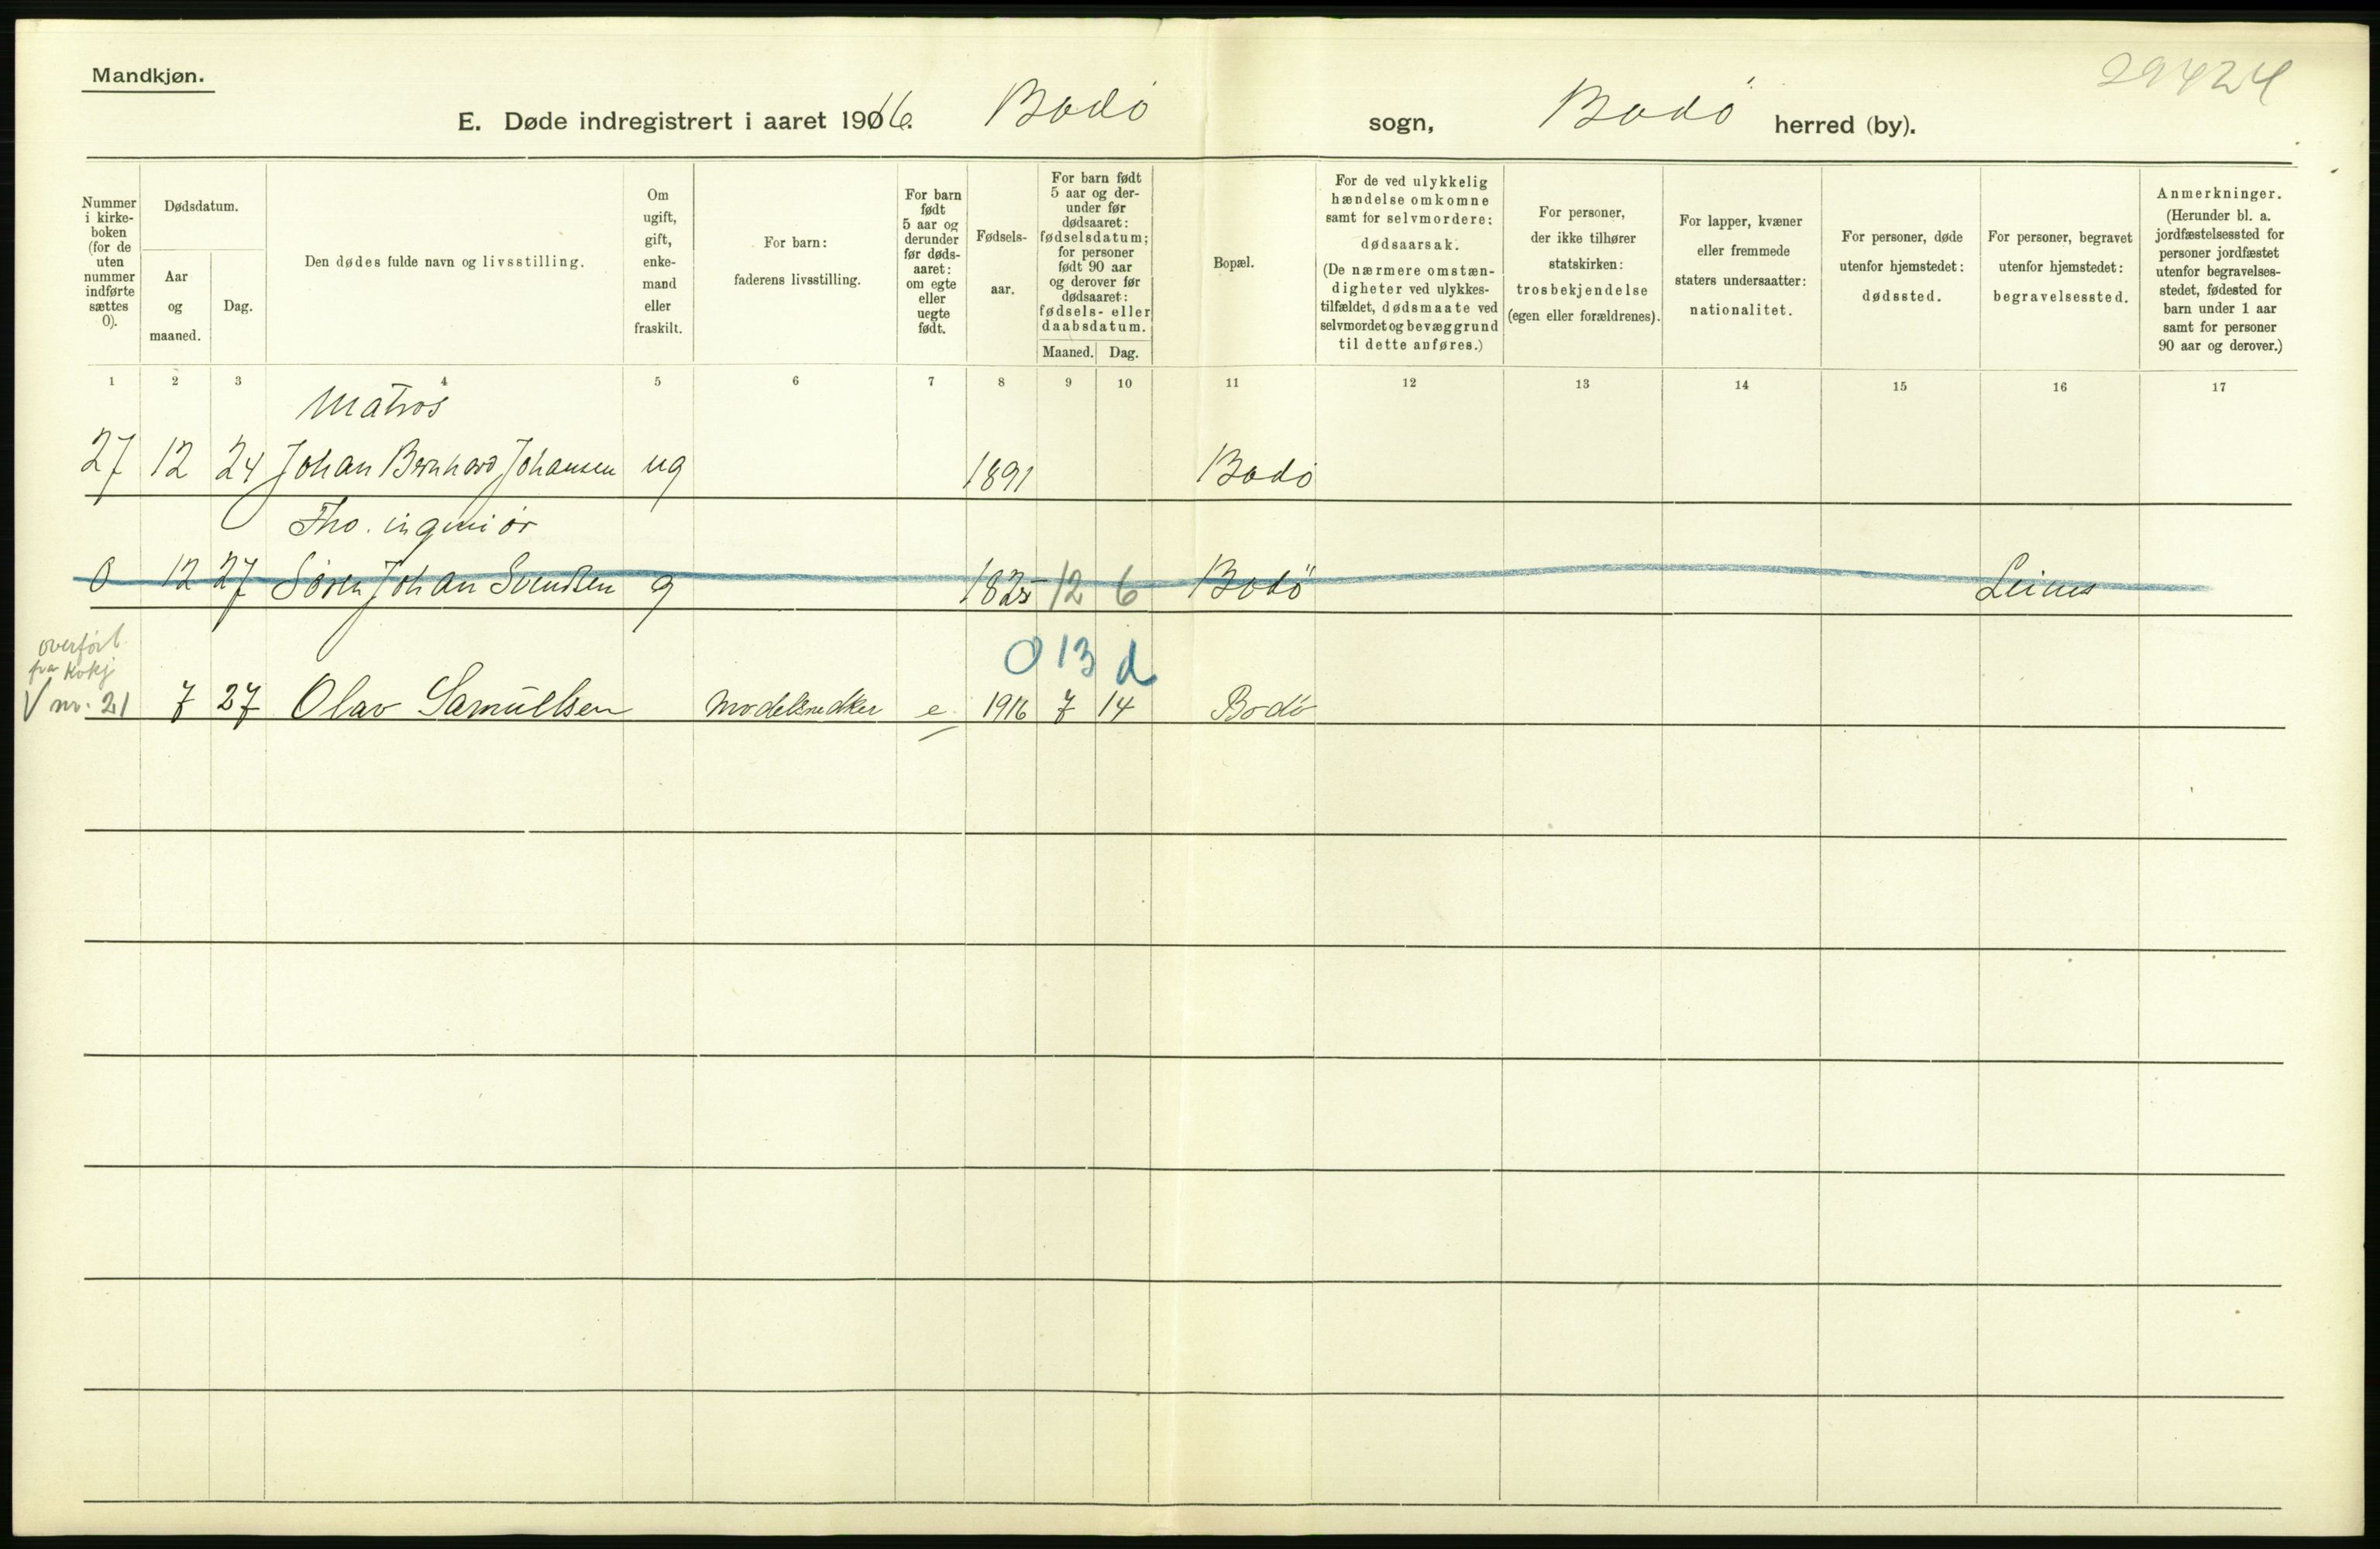 Mandkjøn.
29424
E. Døde indregistrert i aaret 1916. Bodö sogn, Bodö herred (by).
Nummer i kirke-boken (for de uten nummer indførte sættes 0).
Dødsdatum.
Aar og maaned.
Dag.
Den dødes fulde navn og livsstilling.
Om ugift, gift, enke-mand eller fraskilt.
For barn: faderens livsstilling.
For barn født 5 aar og derunder før døds-aaret: om egte eller uegte født.
Fødsels-aar.
For barn født 5 aar og der-under før dødsaaret: fødselsdatum; for personer født 90 aar og derover før dødsaaret: fødsels- eller daabsdatum.
Maaned. Dag.
Bopæl.
For de ved ulykkelig hændelse omkomne samt for selvmordere: dødsaarsak. (De nærmere omstæn-digheter ved ulykkes-tilfældet, dødsmaate ved selvmordet og bevæggrund til dette anføres.)
For personer, der ikke tilhører statskirken: trosbekjendelse (egen eller forældrenes).
For lapper, kvæner eller fremmede staters undersaatter: nationalitet.
For personer, døde utenfor hjemstedet: dødssted.
For personer, begravet utenfor hjemstedet: begravelsessted.
Anmerkninger. (Herunder bl. a. jordfæstelsessted for personer jordfæstet utenfor begravelses-stedet, fødested for barn under 1 aar samt for personer 90 aar og derover.)
1 2 3 4 5 6 7 8 9 10 11 12 13 14 15 16 17
Matros
27 12 24 Johan Bernhard Johansen ug 1891 Bodö
Fho. ingeniör
0 12 27 Sören Johan Svendsen g 1825 12 6 Bodö Leines
overført
fra Kvkj
0 13 d
V nr. 21 7 27 Olav Samuelsen Modelsnedker e. 1916 7 14 Bodö